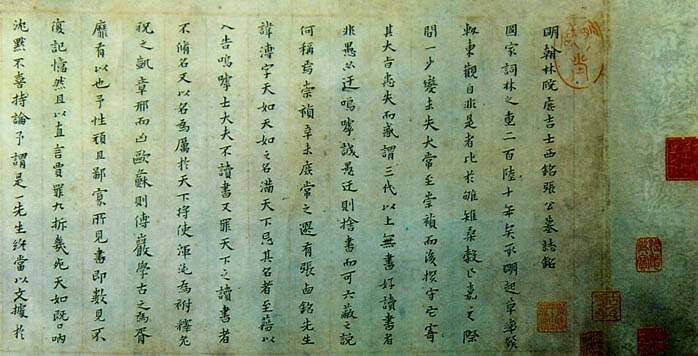 明翰林院庶吉士西銘張公墓誌銘
國家詞林之重二百陸十年矣承明起草華發
東觀自非是者比於雊雉桑穀正嘉之際
間一少變未失大常至崇禎而後探守它寄
其大者患失而感謂三代以上無書好讀書者
非愚亦迂嗚嘑誠愚迂則捨書而可六蔽之說
何稱焉崇禎辛未庶常之選有張西銘先生
諱溥字天如天如之名滿天下忌其名者至藉以
入告嗚嘑士大夫不讀書又罪天下之讀書者
不脩名又以名為厲於天下將使渾沌為
祝之凱章邪而凶歐蘇則傅巖學古之為胥
靡有以也予性頑且鄙寡所見書即數見不
復記憶然且以直言賈罪九折幾死天如既口吶
沈默不喜持論予謂是一先生終當以文援於